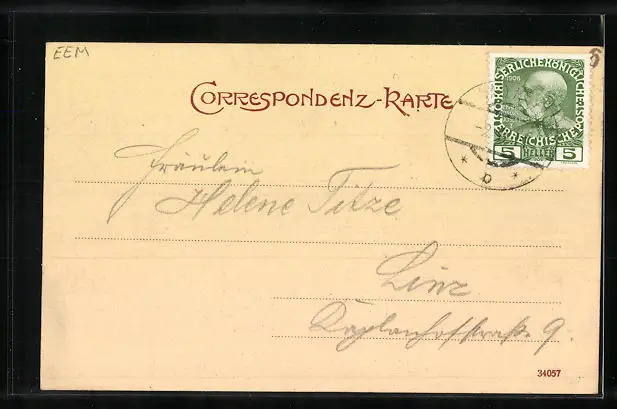 EEM
6
CORRESPONDENZ-KARTE
KAISERLICHE KÖNIGLICHE
1908
ÖSTERREICHISCHE
5 HELLER 5
* b *
Fräulein
Helene Titze
Linz
Kaplanhofstraße 9.
34057